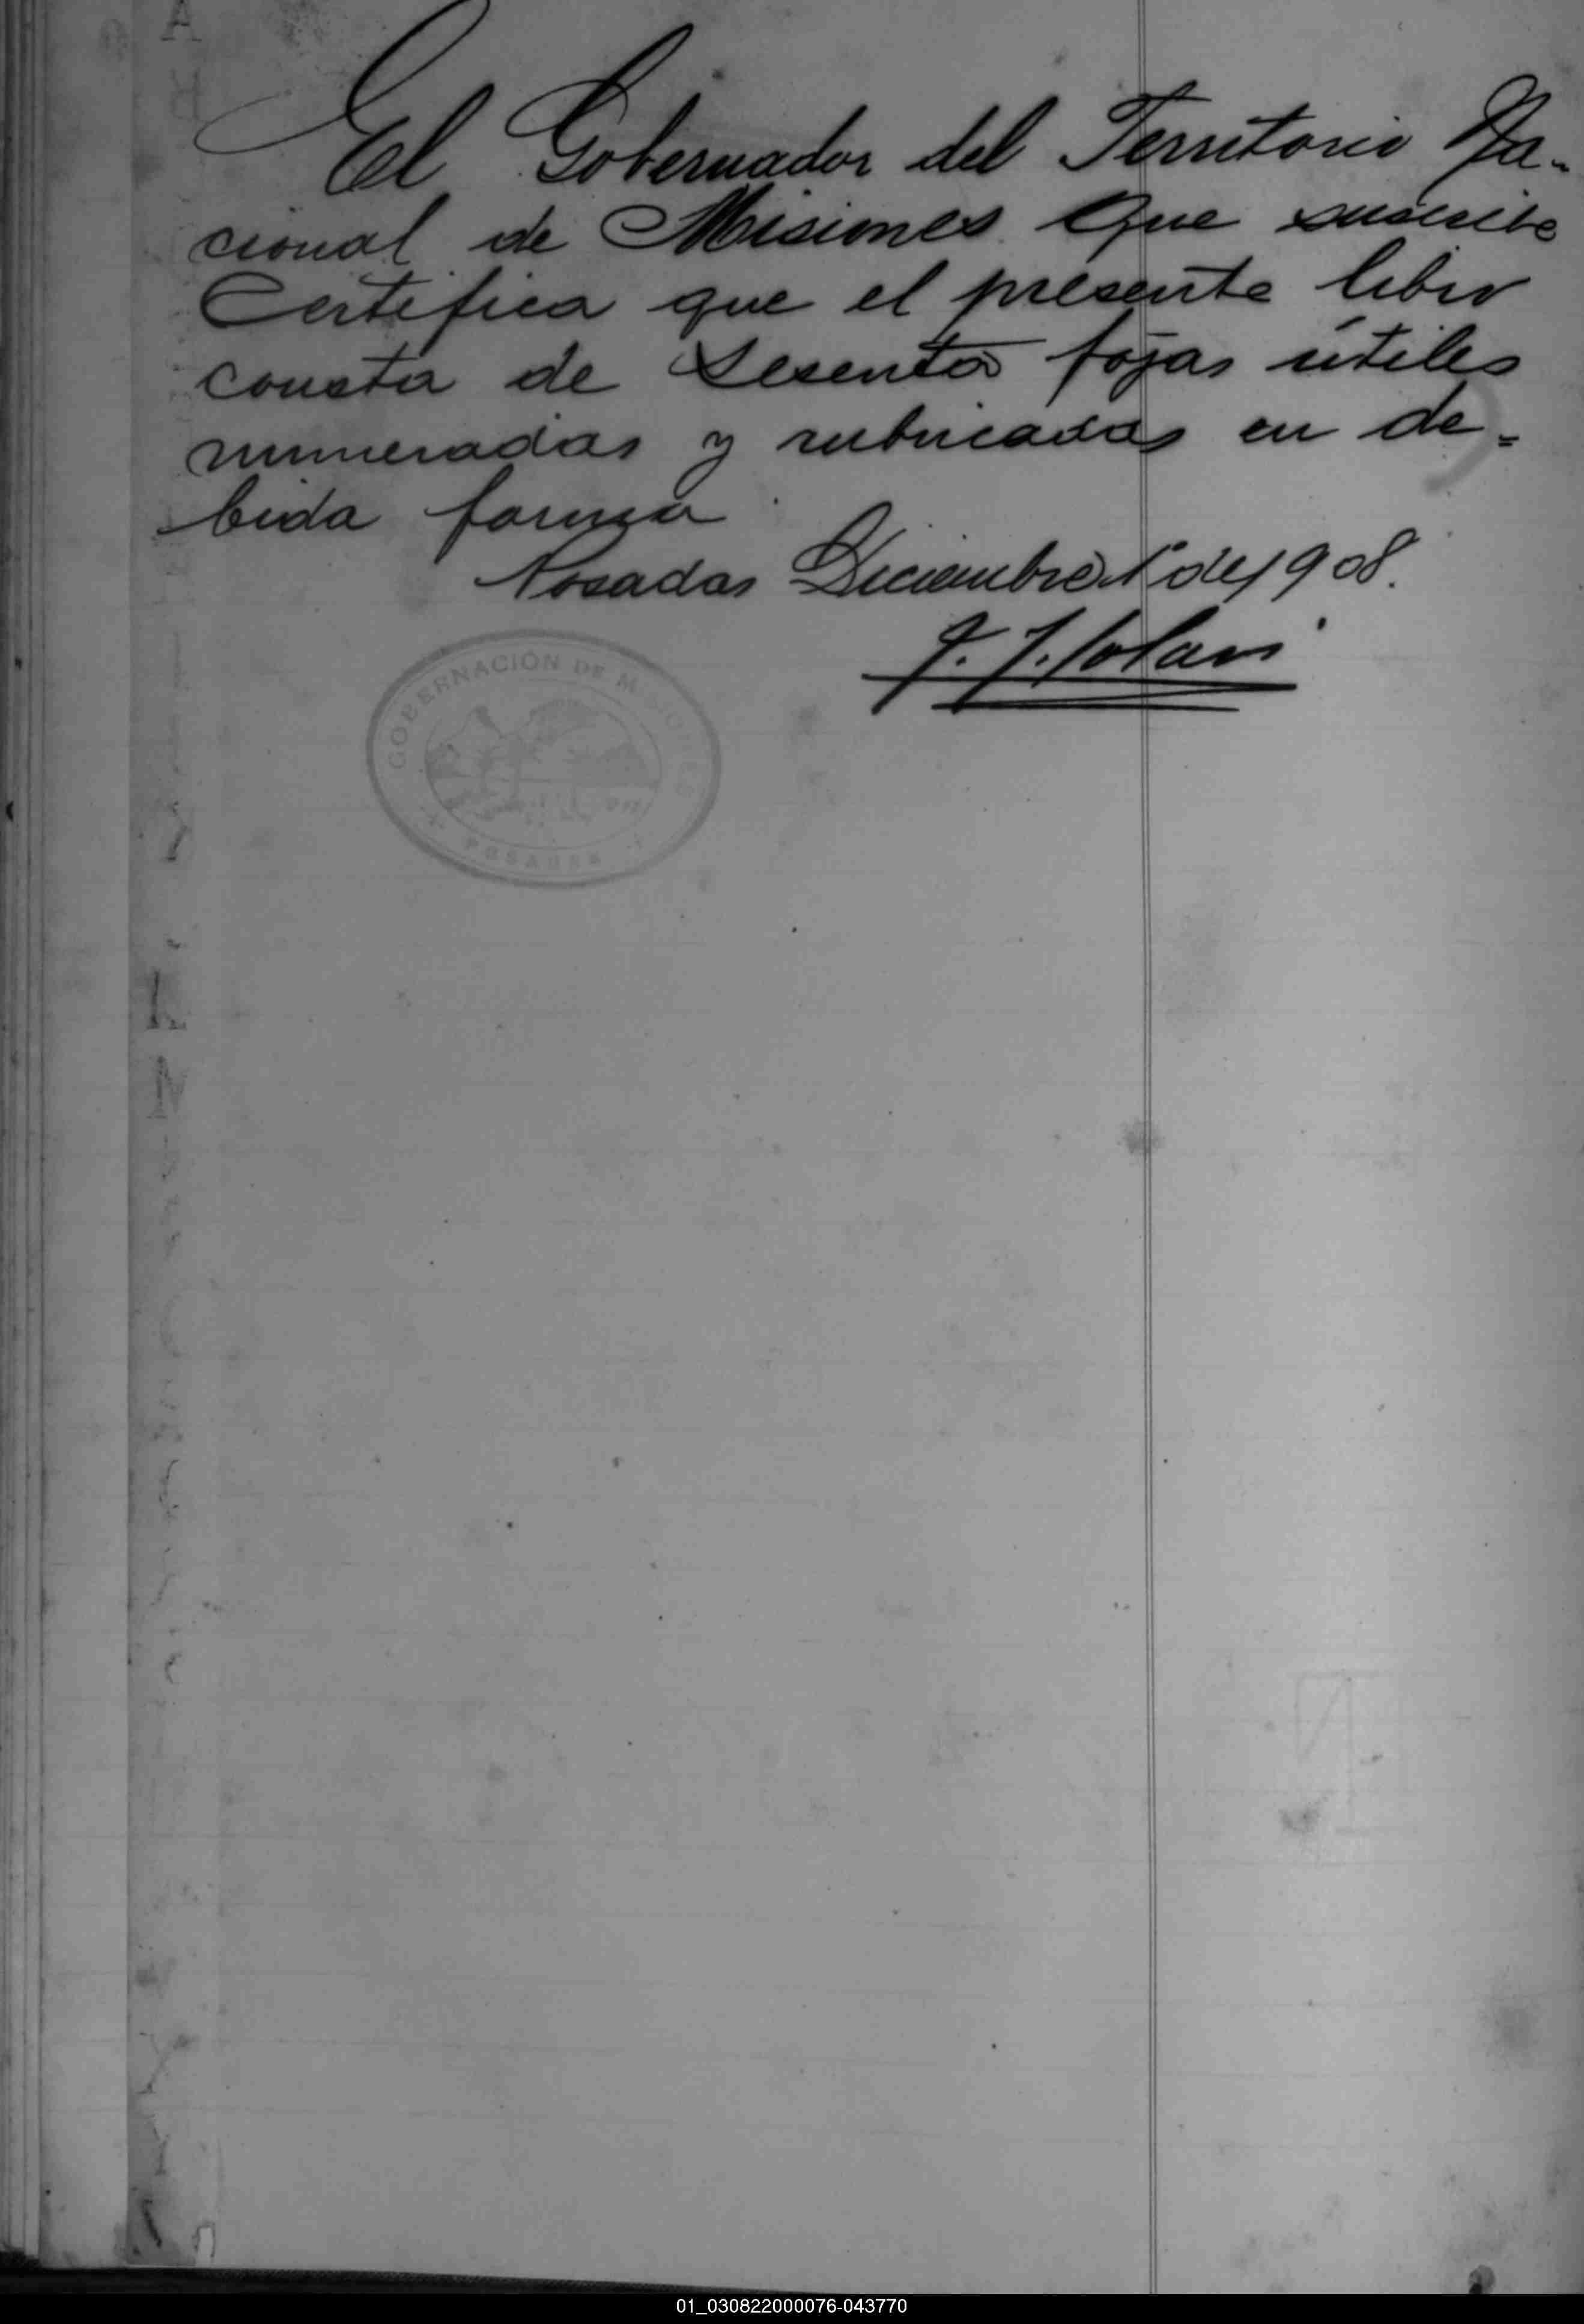 El Gobernador del Territorio Na-
cional de Misiones que suscribe
Certifica que el presente libro
consta de Sesenta fojas útiles
numeradas y rubricadas en de=
bida forma
Posadas Diciembre 1° de 1908.
J. J. Solari
GOBERNACIÓN DE MISIONES
POSADAS
01_030822000076-043770